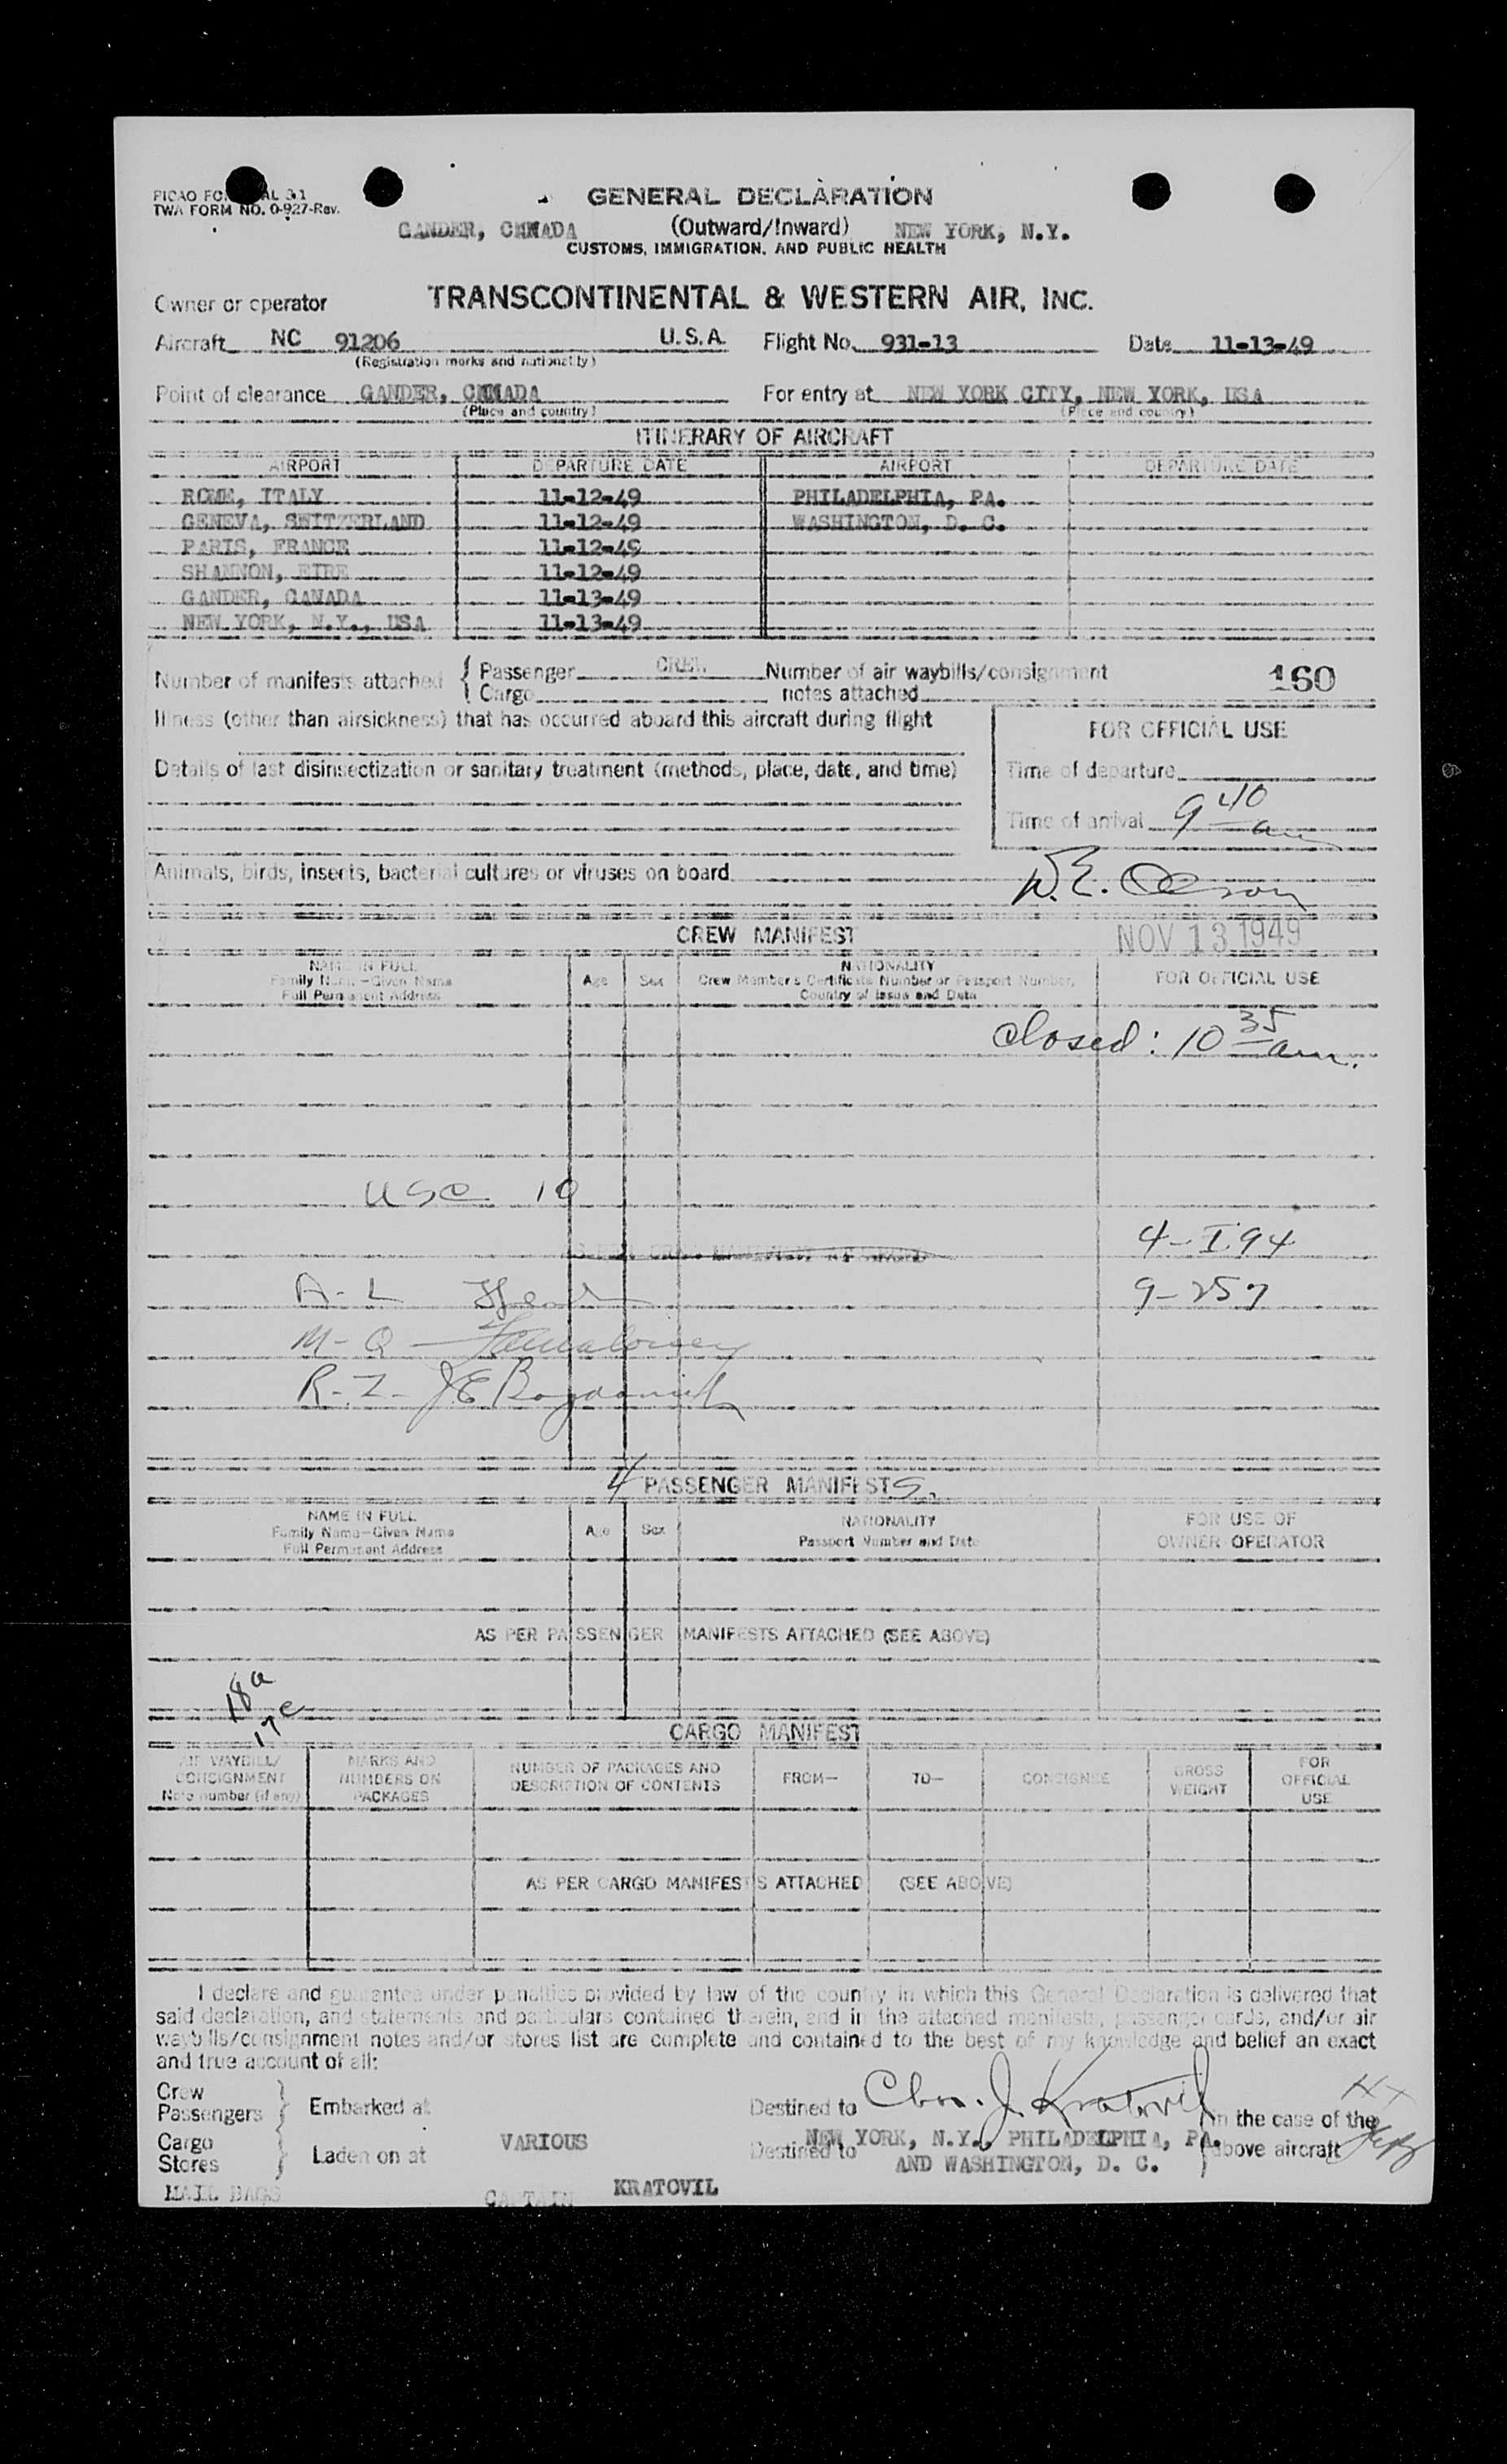 TWA FORM NO. 0-927-Rev.
GENERAL DECLARATION
GANDER, CANADA (Outward/Inward) NEW YORK, N.Y.
CUSTOMS, IMMIGRATION, AND PUBLIC HEALTH
Owner or operator TRANSCONTINENTAL & WESTERN AIR, INC.
Aircraft NC 91206 U.S.A. Flight No. 931-13 Date 11-13-49
(Registration marks and nationality)
Point of clearance GANDER, CANADA For entry at NEW YORK CITY, NEW YORK, USA
(Place and country) (Place and country)
ITINERARY OF AIRCRAFT
AIRPORT DEPARTURE DATE AIRPORT DEPARTURE DATE
ROME, ITALY 11-12-49 PHILADELPHIA, PA.
GENEVA, SWITZERLAND 11-12-49 WASHINGTON, D. C.
PARIS, FRANCE 11-12-49
SHANNON, EIRE 11-12-49
GANDER, CANADA 11-13-49
NEW YORK, N.Y., USA 11-13-49
Number of manifests attached { Passenger CREW Number of air waybills/consignment 160
Cargo notes attached
Illness (other than airsickness) that has occurred aboard this aircraft during flight
FOR OFFICIAL USE
Details of last disinsectization or sanitary treatment (methods, place, date, and time)
Time of departure
Time of arrival 9 40 am
Animals, birds, insects, bacterial cultures or viruses on board
W.E. Olson
CREW MANIFEST NOV 13 1949
NAME IN FULL Age Sex NATIONALITY FOR OFFICIAL USE
Family Name-Given Name Crew Member's Certificate Number or Passport Number,
Full Permanent Address Country of Issue and Date
Closed: 10 35 am.
USC 10
4-I.94
A-L 9-257
M-Q
R-Z- J.E.
4 PASSENGER MANIFESTS.
NAME IN FULL Age Sex NATIONALITY FOR USE OF
Family Name-Given Name Passport Number and Date OWNER-OPERATOR
Full Permanent Address
AS PER PASSENGER MANIFESTS ATTACHED (SEE ABOVE)
18a
17c
CARGO MANIFEST
AIR WAYBILL/ MARKS AND NUMBER OF PACKAGES AND FROM- TO- CONSIGNEE GROSS FOR
CONSIGNMENT NUMBERS ON DESCRIPTION OF CONTENTS WEIGHT OFFICIAL
Note number (if any) PACKAGES USE
AS PER CARGO MANIFESTS ATTACHED (SEE ABOVE)
I declare and guarantee under penalties provided by law of the country in which this General Declaration is delivered that
said declaration, and statements and particulars contained therein, and in the attached manifests, passenger cards, and/or air
waybills/consignment notes and/or stores list are complete and contained to the best of my knowledge and belief an exact
and true account of all:
Crew
Passengers } Embarked at Destined to Chas. J. Kratovil in the case of the
Cargo
Stores } Laden on at VARIOUS Destined to NEW YORK, N.Y., PHILADELPHIA, PA. above aircraft
AND WASHINGTON, D. C.
MAIL BAGS CAPTAIN KRATOVIL